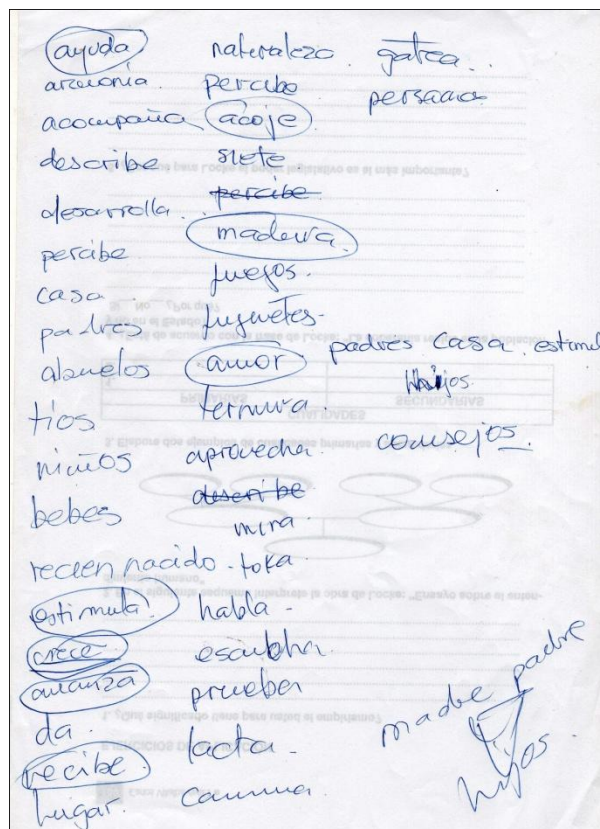 ayuda
armonia
acompaña
describe
desarrolla
percibe
casa
padres
abuelos
tios
niños
bebes
recien nacido -
estimula
crece
avanza
da
recibe
hogar.
naturaleza
percibe
acoje
siete
percibe
madeira
juegos.
juguetes-
amor
ternura
aprovecha
describe
mira
toka
habla -
escubha
prueba
lacta -
camina
gatea
padres casa. estimul
hijos
consejos.
madre padre
hijos